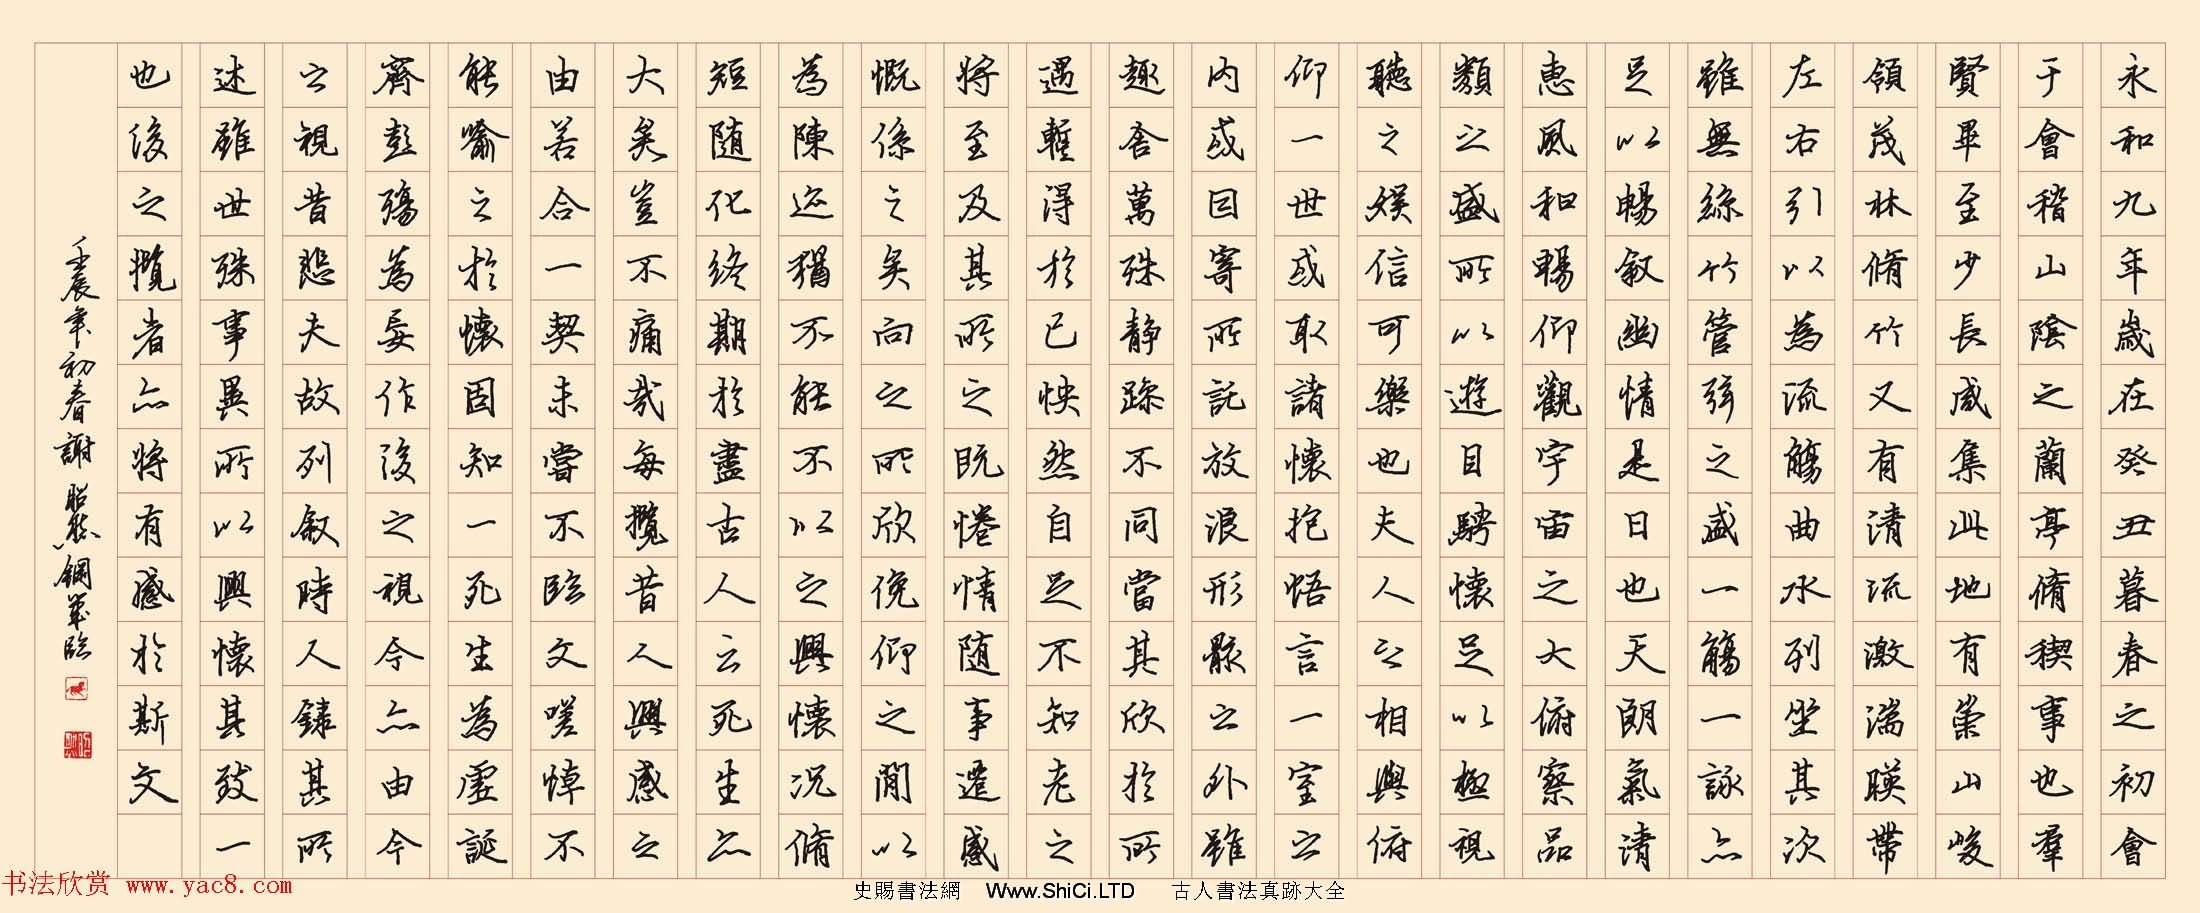 永和九年歲在癸丑暮春之初會
于會稽山陰之蘭亭脩稧事也羣
賢畢至少長咸集此地有崇山峻
領茂林脩竹又有清流激湍暎帶
左右引以為流觴曲水列坐其次
雖無絲竹管弦之盛一觴一詠亦
足以暢敘幽情是日也天朗氣清
惠風和暢仰觀宇宙之大俯察品
類之盛所以遊目騁懷足以極視
聽之娛信可樂也夫人之相與俯
仰一世或取諸懷抱悟言一室之
內或因寄所託放浪形骸之外雖
趣舎萬殊静躁不同當其欣於所
遇暫得於己怏然自足不知老之
將至及其所之既惓情随事遷感
慨係之矣向之所欣俛仰之閒以
為陳迹猶不能不以之興懷況脩
短随化終期於盡古人云死生亦
大矣豈不痛哉每攬昔人興感之
由若合一契未嘗不臨文嗟悼不
能喻之於懷固知一死生為虛誕
齊彭殤為妄作後之視今亦由今
之視昔悲夫故列敘時人錄其所
述雖世殊事異所以興懷其致一
也後之攬者亦將有感於斯文
壬辰年初春謝昭然鋼筆臨
书法欣赏 www.yac8.com
史賜書法網 Www.ShiCi.LTD 古人書法真跡大全